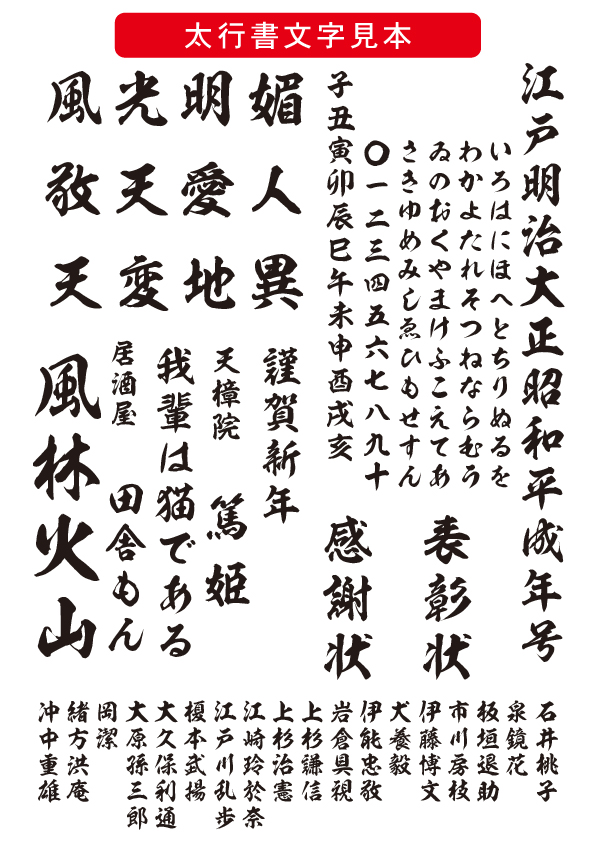 太行書文字見本
江戸明治大正昭和平成年号
いろはにほへとちりぬるを
わかよたれそつねならむう
ゐのおくやまけふこえてあ
さきゆめみしゑひもせすん
〇一二三四五六七八九十
子丑寅卯辰巳午未申酉戌亥
表彰状
感謝状
媚人異
明愛地
光天変
風敬天
謹賀新年
天樟院 篤姫
我輩は猫である
居酒屋 田舎もん
風林火山
石井桃子
泉鏡花
板垣退助
市川房枝
伊藤博文
犬養毅
伊能忠敬
岩倉具視
上杉謙信
上杉治憲
江崎玲於奈
江戸川乱歩
榎本武揚
大久保利通
大原孫三郎
岡潔
緒方洪庵
沖中重雄